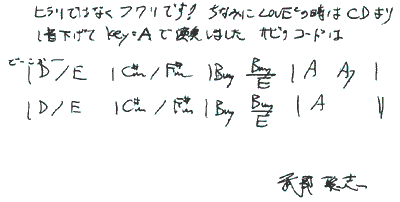 ヒラリではなくフワリです! ちなみにLOVEの時はCDより
1音下げて Key=A で演奏しました サビのコードは
どーこかー
| D / E | C#m / F#m | Bm7 Bm7/E | A A7 |
| D / E | C#m / F#m | Bm7 Bm7/E | A ||
武部聡志